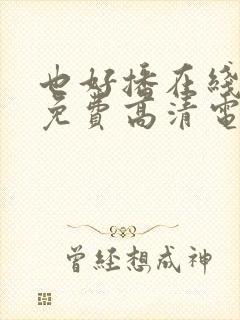 也好播在线
免费高清电
曾经想成神